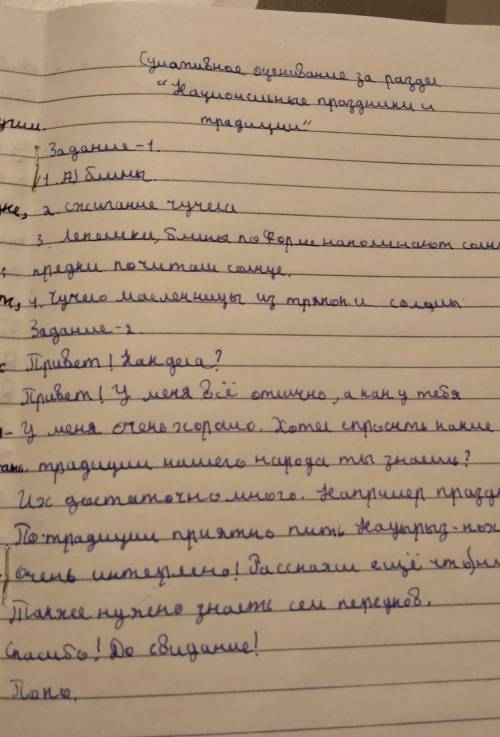 Сумативное оценивание за разде
"Национальные праздники и
традиции"
Задание-1.
1. А) блины.
2. сжигание чучела
3. Лепешки, блины по форме напоминают солн
предки почитали солнце.
4. Чучело масленницы из тряпок и соломы
Задание-2.
Привет! Как дела?
Привет! У меня всё отлично, а как у тебя
У меня очень хорошо. Хотел спросить какие
традиции нашего народа ты знаешь?
Их достаточно много. Например празд
По традиции приятно пить Науырыз-кож
очень интересно! Расскажи ещё что
Также нужно знать сем передков.
Спасибо! До свидание!
Пока.